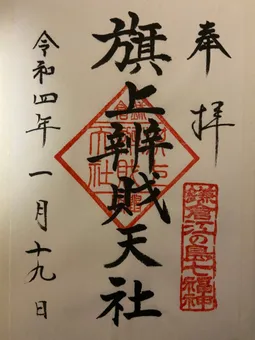 奉拝
旗上辨財天社
令和四年一月十九日
鎌倉江の島七福神